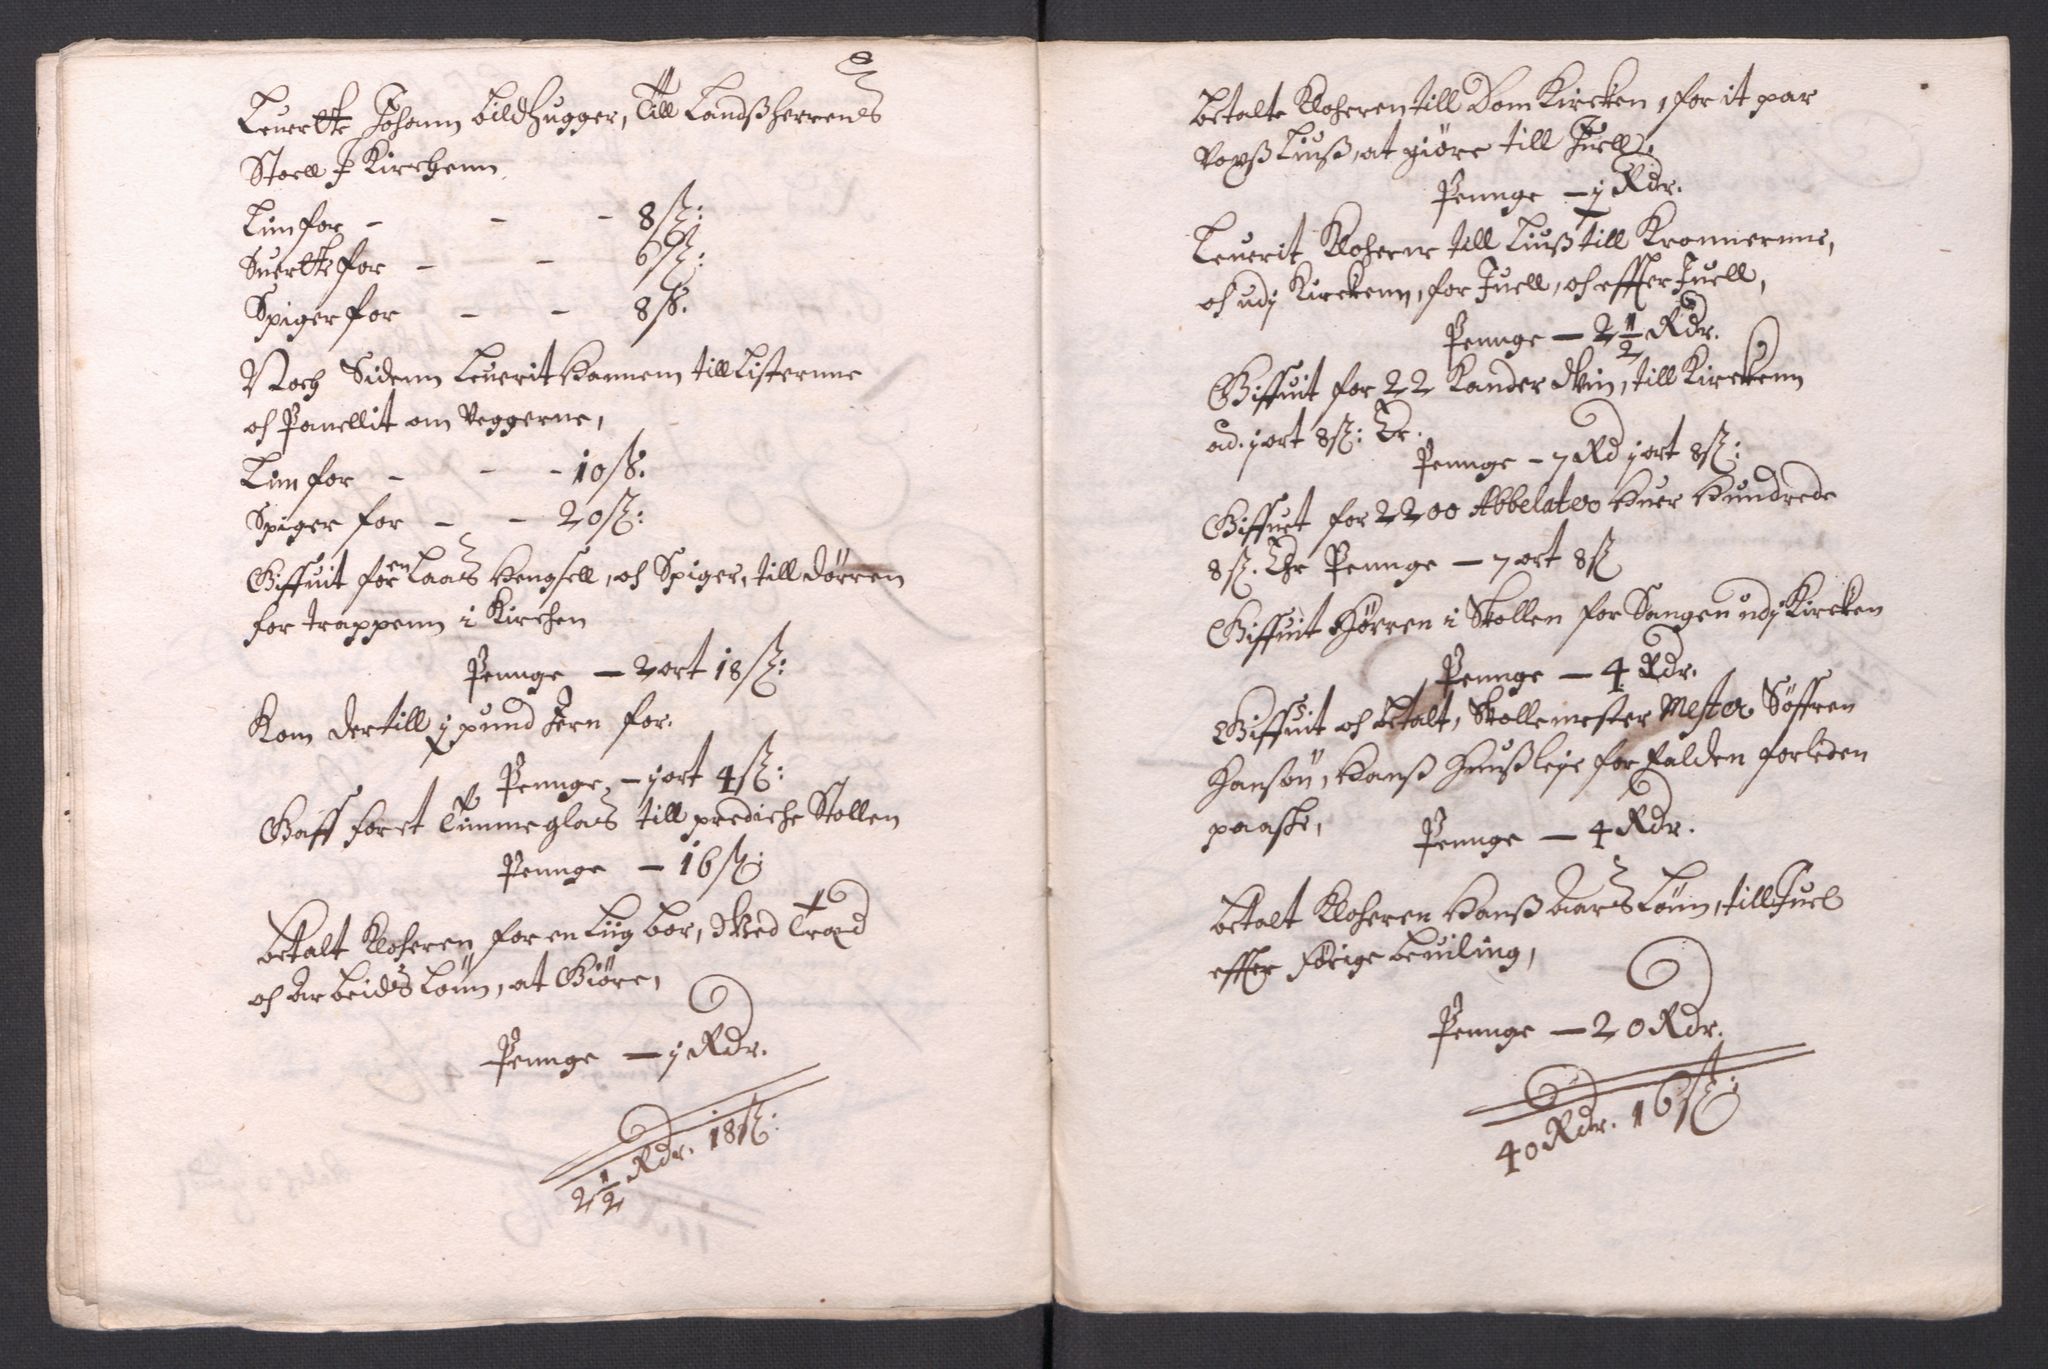 Leuertte Johann bildhugger, Till Landßherrens
Stoell J Kirchenn
Lim for - - - 8 ß:
Suertte for - - 6 ß:
Spiger for - - 8 ß.
Noch Sidenn Leuerit hannem till Listernne
och Panellit om veggerne,
Lim for - - - 10 ß.
Spiger for - - 20 ß:
Giffuit for en Laas hengsell, och Spiger, till dørren
for trappenn i Kirchen
Pennge — 2 ort 18 ß:
Kom der till j pund Jern for.
Pennge, — j ort 4 ß:
Gaff for et Timmeglas till prediche Stollen
Pennge — 16 ß:
betalt Klocheren for en Liig bor, Med Træ
och Arbeids Lønn, at Giøre,
Pennge — j Rdr.
2 1/2 Rdr. 18 ß:
betalte Klocheren till Dom Kircken, for it par
voxß Liuß, at giøre till Juell.
Pennge — j Rdr.
Leuerit Klocherne till Liuß till Kronnernne,
och udj Kirckenn, for Juell, och effter Juell,
Pennge — 2 1/2 Rdr.
Giffuit for 22 Kander Vin, till Kirckenn
ad. j ort 8 ß:
Pennge — 7 Rd j ort 8 ß:
Giffuet for 2200 Abbelater huer hundrede
8 ß. Er Pennge — 7 ort 8 ß
Giffuit Hørren i Skollen for Sangen udj Kircken
Pennge — 4 Rdr.
Giffuit och betalt, Skollemester Mester Søffren
Hansøn, hanß Huußleye for falden forleden
paaske,
Pennge — 4 Rdr.
betalt Klocheren hanß Aars Lønn, till Juel
effter forige beuiling,
Pennge — 20 Rdr.
40 Rdr. 16 ß: